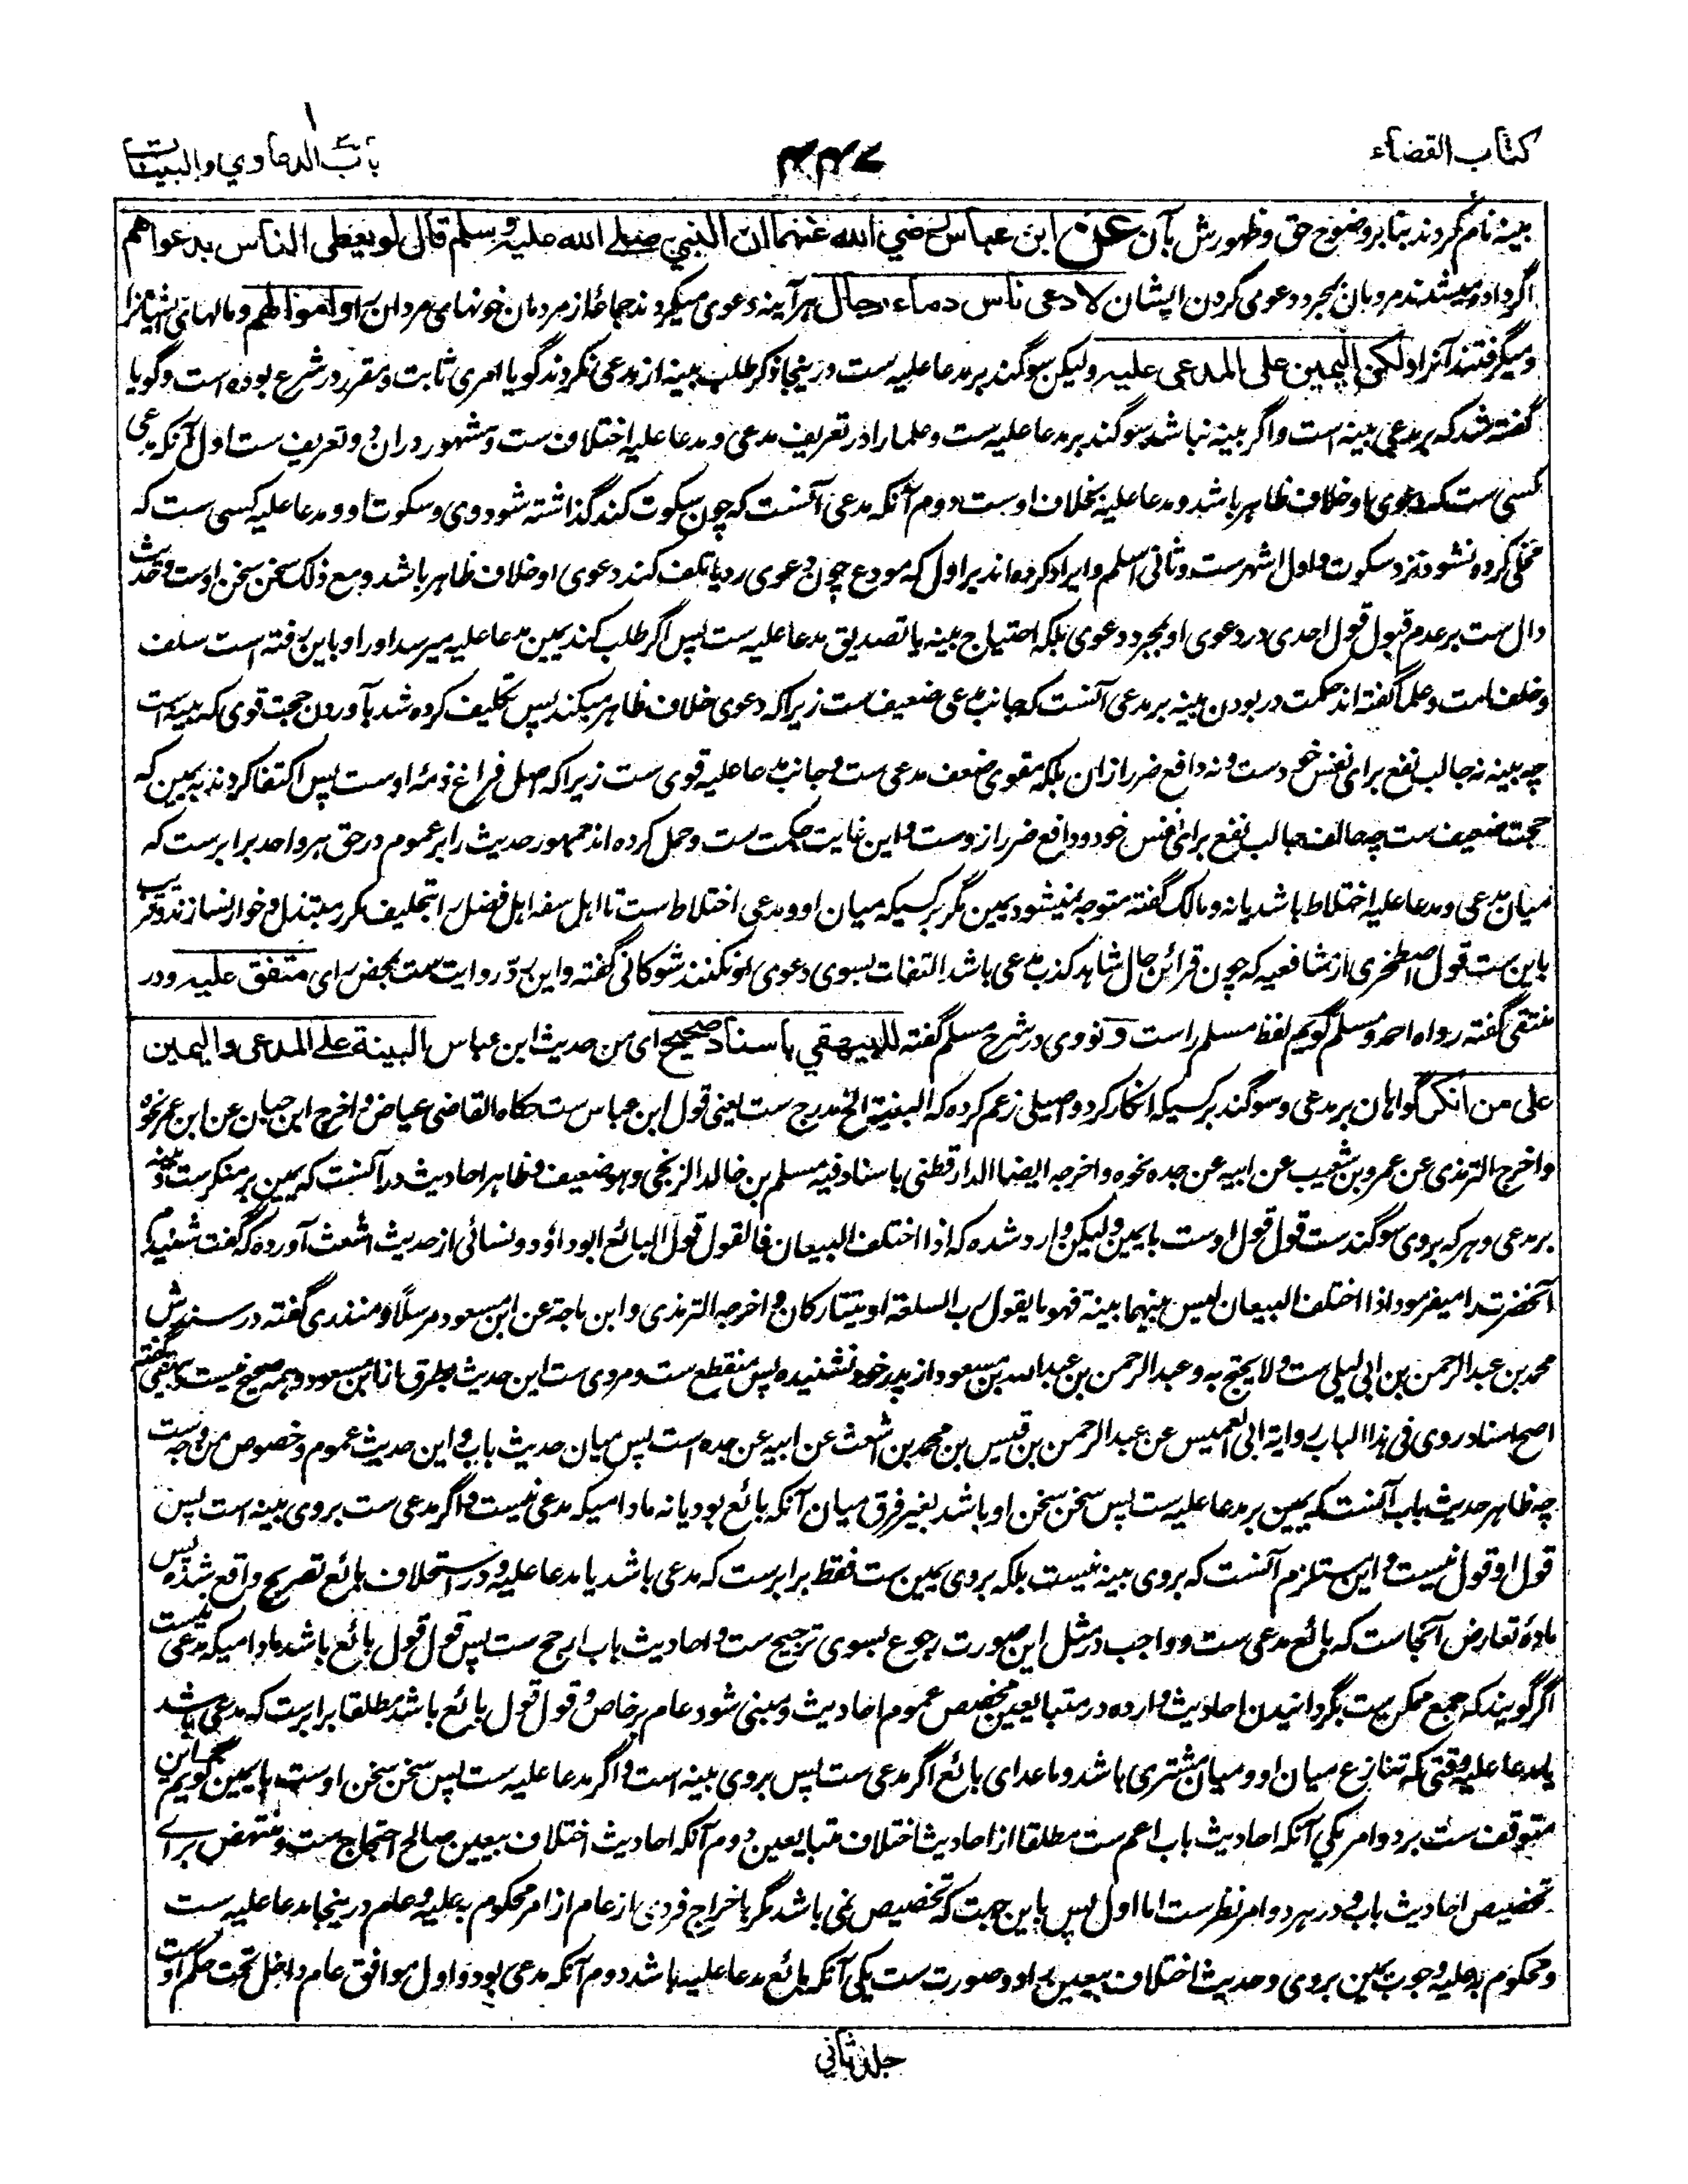 کتاب القضاء
۴۴۷
باب الدعاوي والبینات
بینه نام کردند بنا بر وضوح حق و ظهورش بآن عن ابن عباس رضي الله عنهما ان النبي صلے الله علیه وسلم قال لو یعطی الناس بدعواهم
اگر داده میشدند مردمان بمجرد دعوی کردن ایشان لادعی ناس دماء رجال هر آینه دعوی میکردند جماعه از مردمان خونهای مردان را و اموالهم و مالهای ایشانرا
و میگرفتند آنرا ولکن الیمین علی المدعی علیه ولیکن سوگند بر مدعا علیه ست درینجا ذکر طلب بینه از مدعی نکردند گویا امری ثابت و مقرر در شرع بوده است و گویا
گفته شد که بر مدعی بینه است و اگر بینه نباشد سوگند بر مدعا علیه ست و علما را در تعریف مدعی و مدعا علیه اختلاف ست و مشهور دران دو تعریف ست اول آنکه مدعی
کسی ست که دعوی او خلاف ظاهر باشد و مدعا علیه بخلاف اوست دوم آنکه مدعی آنست که چون سکوت کند گذاشته شود وی و سکوت او و مدعا علیه کسی ست که
مخلی کرده نشود نزد سکوت و اول اشهرست و ثانی اسلم و ایراد کرده اند بر اول که مودع چون دعوی رد یا تلف کند دعوی او خلاف ظاهر باشد و مع ذلک سخن سخن اوست و حدیث
دال ست بر عدم قبول قول احدی در دعوی او بمجرد دعوی بلکه احتیاج بینه یا تصدیق مدعا علیه ست پس اگر طلب کند یمین مدعا علیه میرسد او را و باین رفته است سلف
و خلف امت و علما گفته اند حکمت در بودن بینه بر مدعی آنست که جانب مدعی ضعیف ست زیرا که دعوی خلاف ظاهر میکند پس تکلیف کرده شد بآوردن حجت قوی که بینه است
چه بینه نه جالب نفع برای نفس خودست و نه دافع ضرر ازان بلکه مقوی ضعف مدعی ست و جانب مدعا علیه قوی ست زیرا که اصل فراغ ذمهٔ اوست پس اکتفا کردند به یمین که
حجت ضعیف ست چه حالف جالب نفع برای نفس خود و دافع ضرر ازوست و این غایت حکمت ست و حمل کرده اند جمهور حدیث را بر عموم در حق هر واحد برابرست که
میان مدعی و مدعا علیه اختلاط باشد یا نه و مالک گفته متوجه نمیشود یمین مگر بر کسیکه میان او و مدعی اختلاط ست تا اهل سفه اهل فضل را بتحلیف مکرر مبتذل و خوار نسازند و قریب
باین ست قول اصطخری از شافعیه که چون قرائن حال شاهد کذب مدعی باشد التفات بسوی دعوی او نکنند شوکانی گفته و این رد روایت ست بمحض رای متفق علیه و در
منتقی گفته رواه احمد و مسلم گویم لفظ مسلم راست و نووی در شرح مسلم گفته للبیهقي باسناد صحیح ای من حدیث ابن عباس البینة علی المدعی والیمین
علی من انکر گواهان بر مدعی و سوگند بر کسیکه انکار کرد و اصیلی زعم کرده که البینة الخ مدرج ست یعنی قول ابن عباس ست حکاه القاضی عیاض و اخرج ابن حبان عن ابن عمر نحوه
و اخرج الترمذی عن عمرو بن شعیب عن ابیه عن جده نحوه و اخرجه ایضا الدارقطنی باسناد فیه مسلم بن خالد الزنجی و هو ضعیف و ظاهر احادیث در آنست که یمین بر منکرست و بینه
بر مدعی و هر که بروی سوگند ست قول قول اوست با یمین ولیکن وارد شده که اذا اختلف البیعان فالقول قول البائع ابو داؤد و نسائی از حدیث اشعث آورده که گفت شنیدم
آنحضرت را میفرمود اذا اختلف البیعان لیس بینهما بینة فهو ما یقول رب السلعة او یتتارکان و اخرجه الترمذی و ابن ماجة عن ابن مسعود مرسلاً و منذری گفته در سندش
محمد بن عبد الرحمن بن ابی لیلی ست و لا یحتج به و عبد الرحمن بن عبد الله بن مسعود از پدر خود نشنیده پس منقطع ست و مروی ست این حدیث بطرق از ابن مسعود و همه صحیح نیست بیهقی گفته
اصح اسناد روی فی هذا الباب روایة ابی العمیس عن عبد الرحمن بن قیس بن محمد بن اشعث عن ابیه عن جده است پس میان حدیث باب و این حدیث عموم و خصوص من وجه ست
چه ظاهر حدیث باب آنست که یمین بر مدعا علیه ست پس سخن سخن او باشد بغیر فرق میان آنکه بائع بود یا نه مادامیکه مدعی نیست و اگر مدعی ست بروی بینه است پس
قول او قول نیست و این مستلزم آنست که بروی بینه نیست بلکه بروی یمین ست فقط برابرست که مدعی باشد یا مدعا علیه و در استحلاف بائع تصریح واقع شده پس
مادهٔ تعارض آنجاست که بائع مدعی ست و واجب در مثل این صورت رجوع بسوی ترجیح ست و احادیث باب ارجح ست پس قول قول بائع باشد مادامیکه مدعی نیست
اگر گویند که جمع ممکن ست بگردانیدن احادیث وارده در متبایعین مخصص عموم احادیث و مبنی شود عام بر خاص و قول قول بائع باشد مطلقا برابرست که مدعی باشد
یا مدعا علیه وقتی که تنازع میان او و میان مشتری باشد و ماعدای بائع اگر مدعی ست پس بروی بینه است و اگر مدعا علیه ست پس سخن سخن اوست با یمین گویم این
متوقف ست بر دو امر یکی آنکه احادیث باب اعم ست مطلقا از احادیث اختلاف متبایعین دوم آنکه احادیث اختلاف بیعین صالح احتجاج ست و منتهض براے
تخصیص احادیث باب و در هر دو امر نظرست اما اول پس باین جهت که تخصیص نمی باشد مگر باخراج فردی از عام از امر محکوم به علیه و عام درینجا مدعا علیه ست
و محکوم به علیه وجوب یمین بروی و حدیث اختلاف بیعین را دو صورت ست یکی آنکه بائع مدعا علیه باشد دوم آنکه مدعی بود و اول موافق عام داخل تحت حکم اوست
جلد ثاني